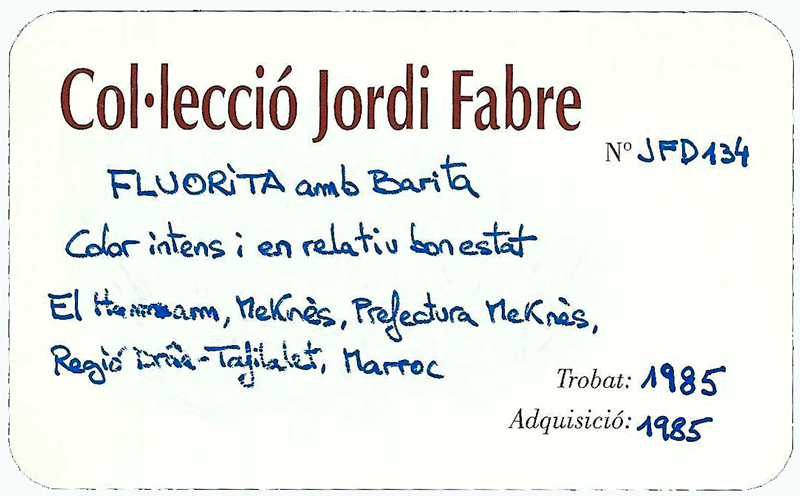 Col·lecció Jordi Fabre
Nº JFD134
FLUORITA amb Barita
Color intens i en relatiu bon estat
El Hammam, Meknès, Prefectura Meknès,
Regió Drâa-Tafilalet, Marroc
Trobat: 1985
Adquisició: 1985